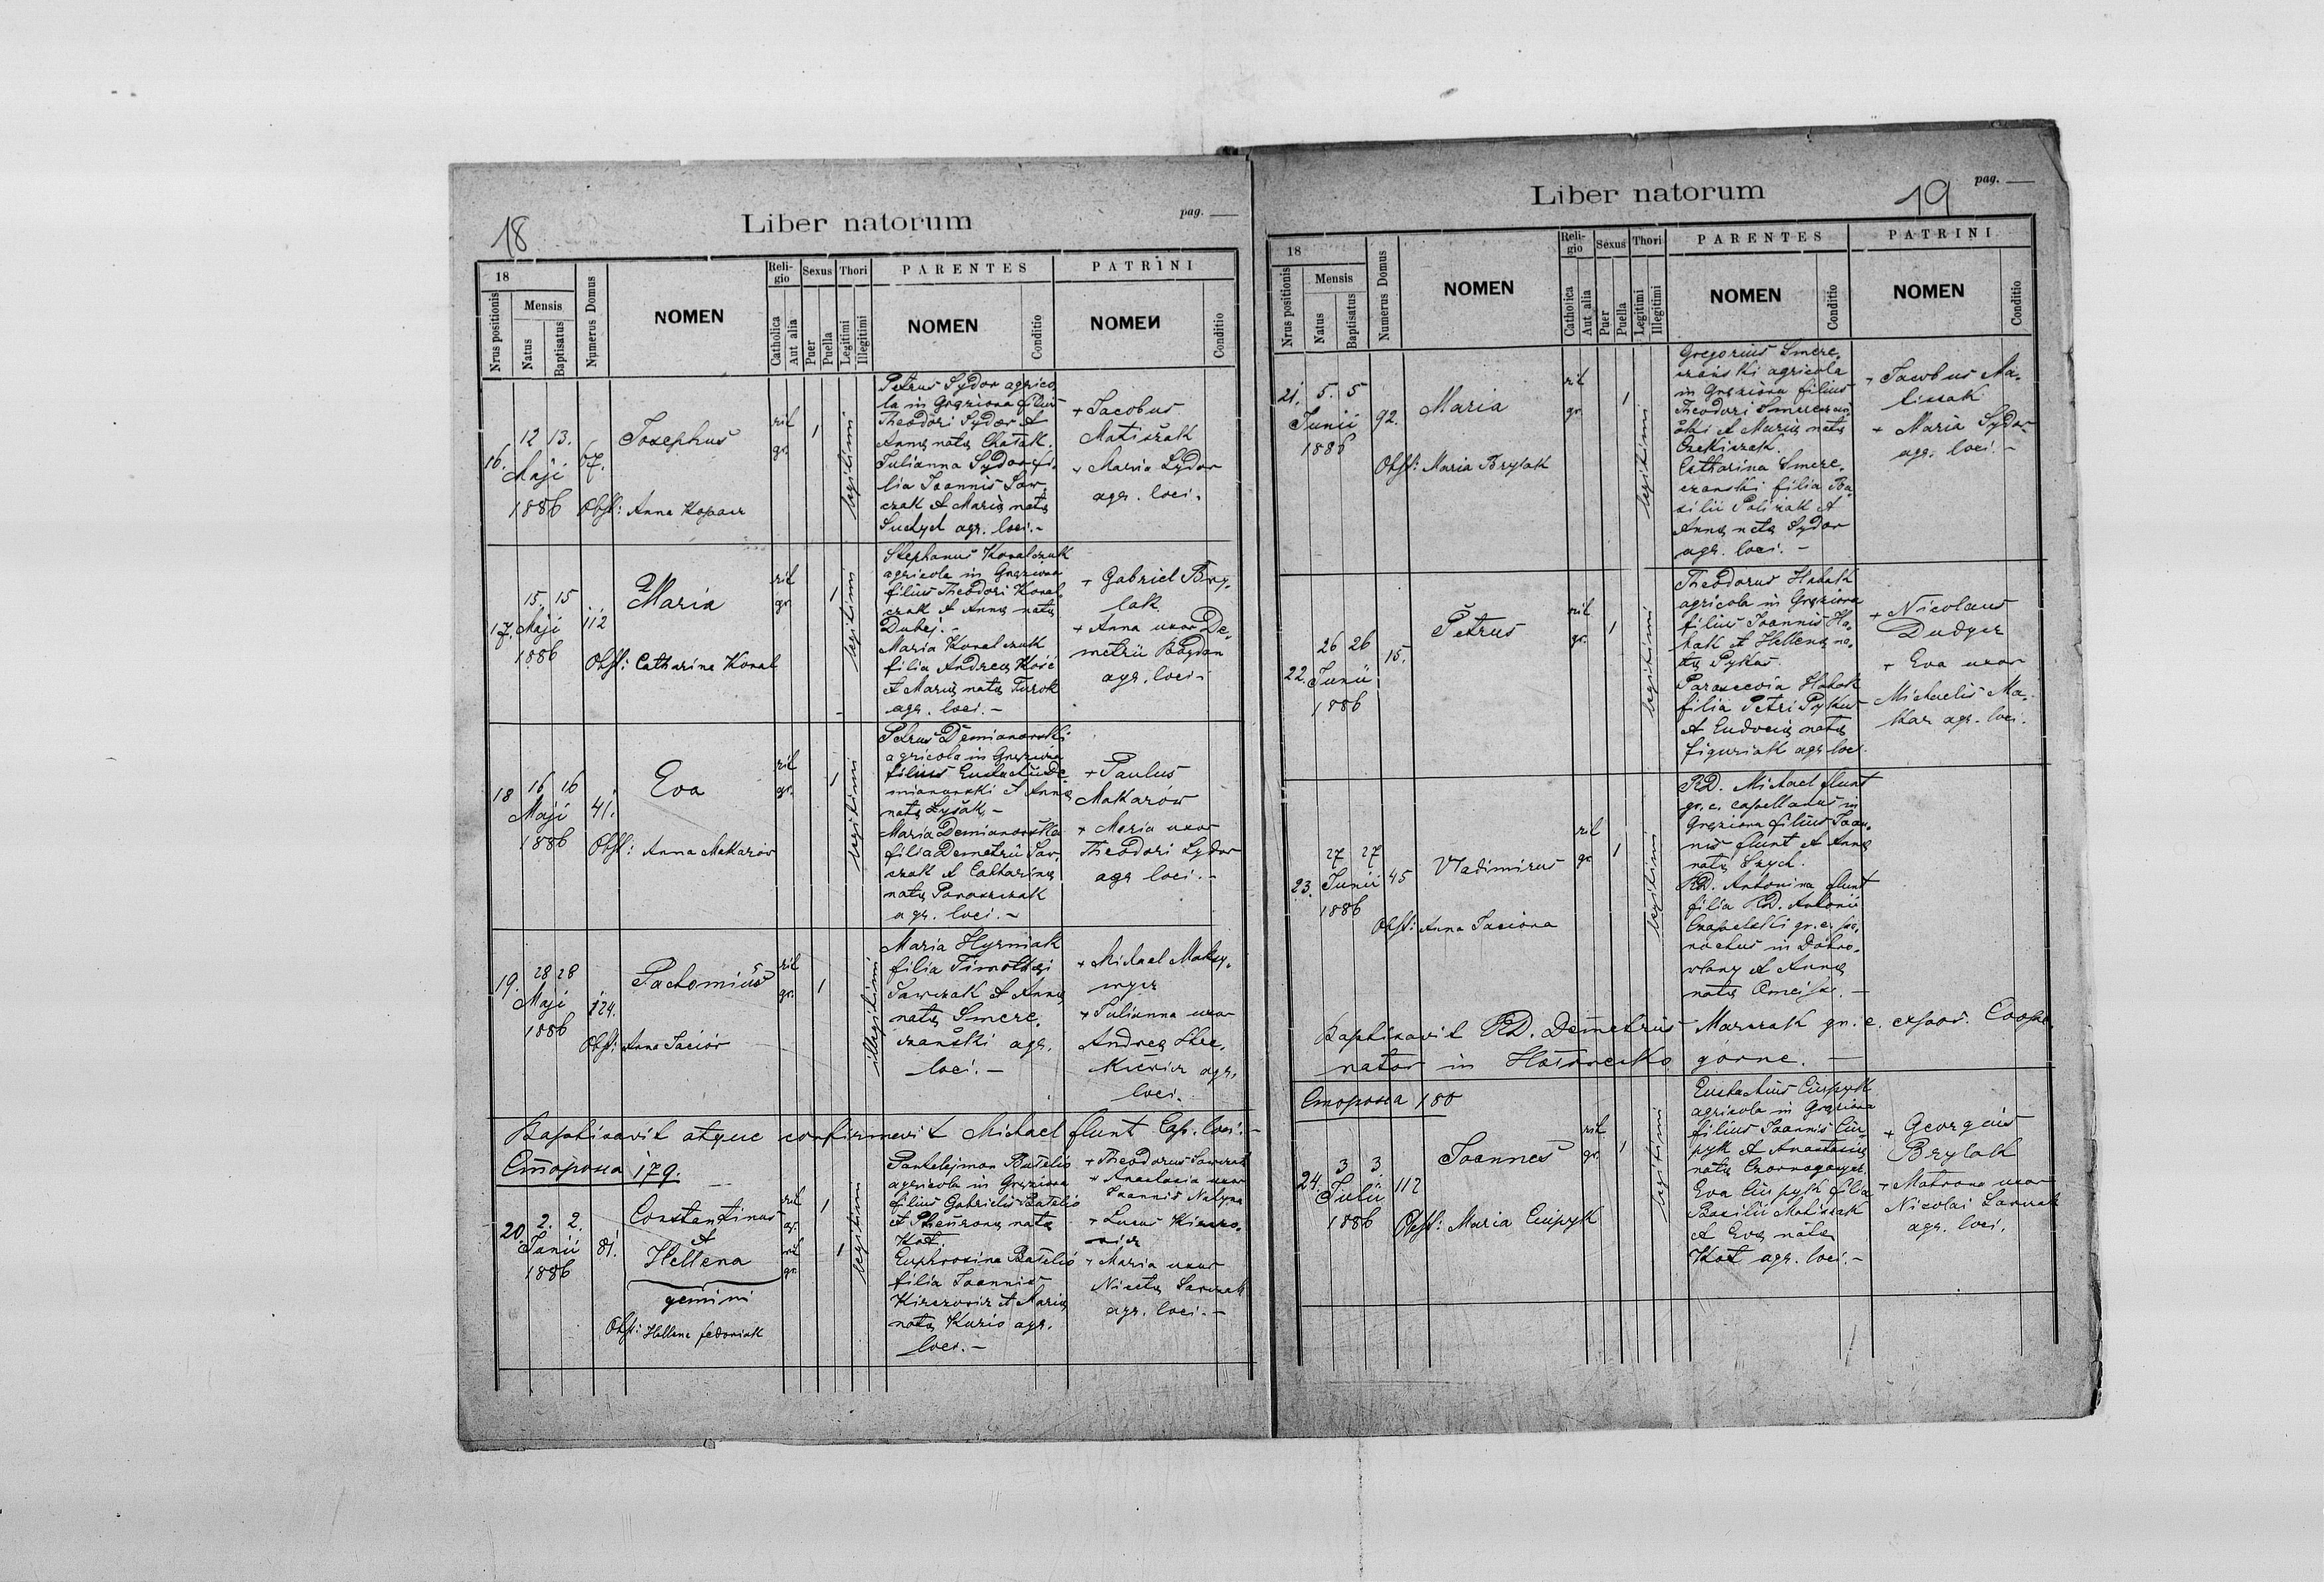 18
Liber natorum
pag.
18
Nrus positionis
Mensis
Natus
Baptisatus
Numerus Domus
NOMEN
Religio
Catholica
Aut alia
Sexus
Puer
Puella
Thori
Legitimi
Illegitimi
PARENTES
NOMEN
Conditio
PATRINI
NOMEN
Conditio
16.
12 13.
Maji
1886
67.
Josephus
Obst: Anna
rit
gr.
1
legitimi
Petrus Sydor agrico
la in Gręziowa filius
Theodori Sydor et
Annę natę
Julianna Sydor fi-
lia Joannis Saw
czak et Marię natę
agr. loci.-
+ Jacobus
+ Maria Sydor
agr. loci.
17.
15. 15
Maji
1886
112
Maria
Obst: Catharina Koval
rit
gr.
1
legitimi
Stephanus Kovalczuk
agricola in Gręziowa
filius Theodori Koval
czak et Annę natę
Dubej.-
Maria Kovalczuk
filia Andreę Kość
et Marię natę Turok
agr. loci.-
+ Gabriel Bry-
lak
+ Anna uxor De-
metrii Bogdan
agr. loci-
18
16 16
Maji
1886
41.
Eva
Obst: Anna Makarów
rit
gr.
1
legitimi
Petrus Demianowski
agricola in Gręziowa
filius Eustachii De-
mianowski et Annę
natę Łysak-
Maria Demianowska
filia Demetrii Saw-
czak et Catharinę
natę
agr. loci.-
+ Paulus
Makarów
+ Maria uxor
Theodori Sydor
agr loci.-
19.
28 28
Maji
1886
124.
Pachomius
Obst: Anna Jaciów
rit
gr.
1
illegitimi
Maria Hyrniak
filia Timothei
Sawczak et Annę
natę Smere-
czański agr.
loci.-
+ Michael
+ Julianna uxor
Andreę
agr.
loci.
Baptisavit atque confirmavit Michael flunt Cap. loci.-
Сторона 179.
20.
2. 2.
Junii
1886
81.
Constantinus
et
Hellena
gemini
Obst: Hellena fedoriak
rit
gr.
rit
gr.
1
1
legitimi
Pantelejmon
agricola in Gręziowa
filius Gabrielis
et natę
Kot.
Euphrosina
filia Joannis
et Marię
natę agr.
loci.-
+ Theodorus Sawczak
+ Anastasia uxor
Joannis
+ Lucas
+ Maria uxor
Nicetę Sawczak
agr. loci.-
Liber natorum
19
pag.
18
Nrus positionis
Mensis
Natus
Baptisatus
Numerus Domus
NOMEN
Religio
Catholica
Aut alia
Sexus
Puer
Puella
Thori
Legitimi
Illegitimi
PARENTES
NOMEN
Conditio
PATRINI
NOMEN
Conditio
21.
5. 5
Junii
1886
92.
Maria
Obst: Maria Brylak
rit
gr.
1
legitimi
Gregorius Smere-
czański agricola
in Gręziowa filius
Theodori Smereczań
ski et Marię natę
Catharina Smere-
czanski filia Ba-
silii et
Annę natę Sydor
agr. loci.-
+ Jacobus Ma-
+ Maria Sydor
agr. loci.-
22.
26 26
Junii
1886
15.
Petrus
rit
gr.
1
legitimi
Theodorus
agricola in Gręziowa
filius Joannis
et Hellenę na-
tę Pykus
Parascevia
filia Petri Pykus
et Eudocię natę
figuriak agr loci.
+ Nicolaus
+ Eva uxor
Michaelis Ma-
kar agr. loci.
23.
27 27
Junii
1886
45
Vladimirus
Obst: Anna Jaciowa
rit
gr.
1
legitimi
RD. Michael flunt
gr. c. capellanus in
Gręziowa filius Joan-
nis flunt et Annę
natę
RD. Antonina flunt
filia RD. Antonii
gr. c.
in Dobro-
wlany et Annę
natę
Baptisavit RD. Demetrius gr. c. Coope-
rator in górne.-
Сторона 180
24.
3 3.
Julii
1886
112
Joannes
Obst: Maria Ciupyk
rit
gr.
1
legitimi
Eustachius Ciupyk
agricola in Gręziowa
filius Joannis Ciu-
pyk et Anastasię
natę
Eva Ciupyk filia
Basilii
et Evę natę
Kot agr. loci.-
+ Georgius
Brylak
+ Matrona uxor
Nicolai Sawczak
agr. loci.